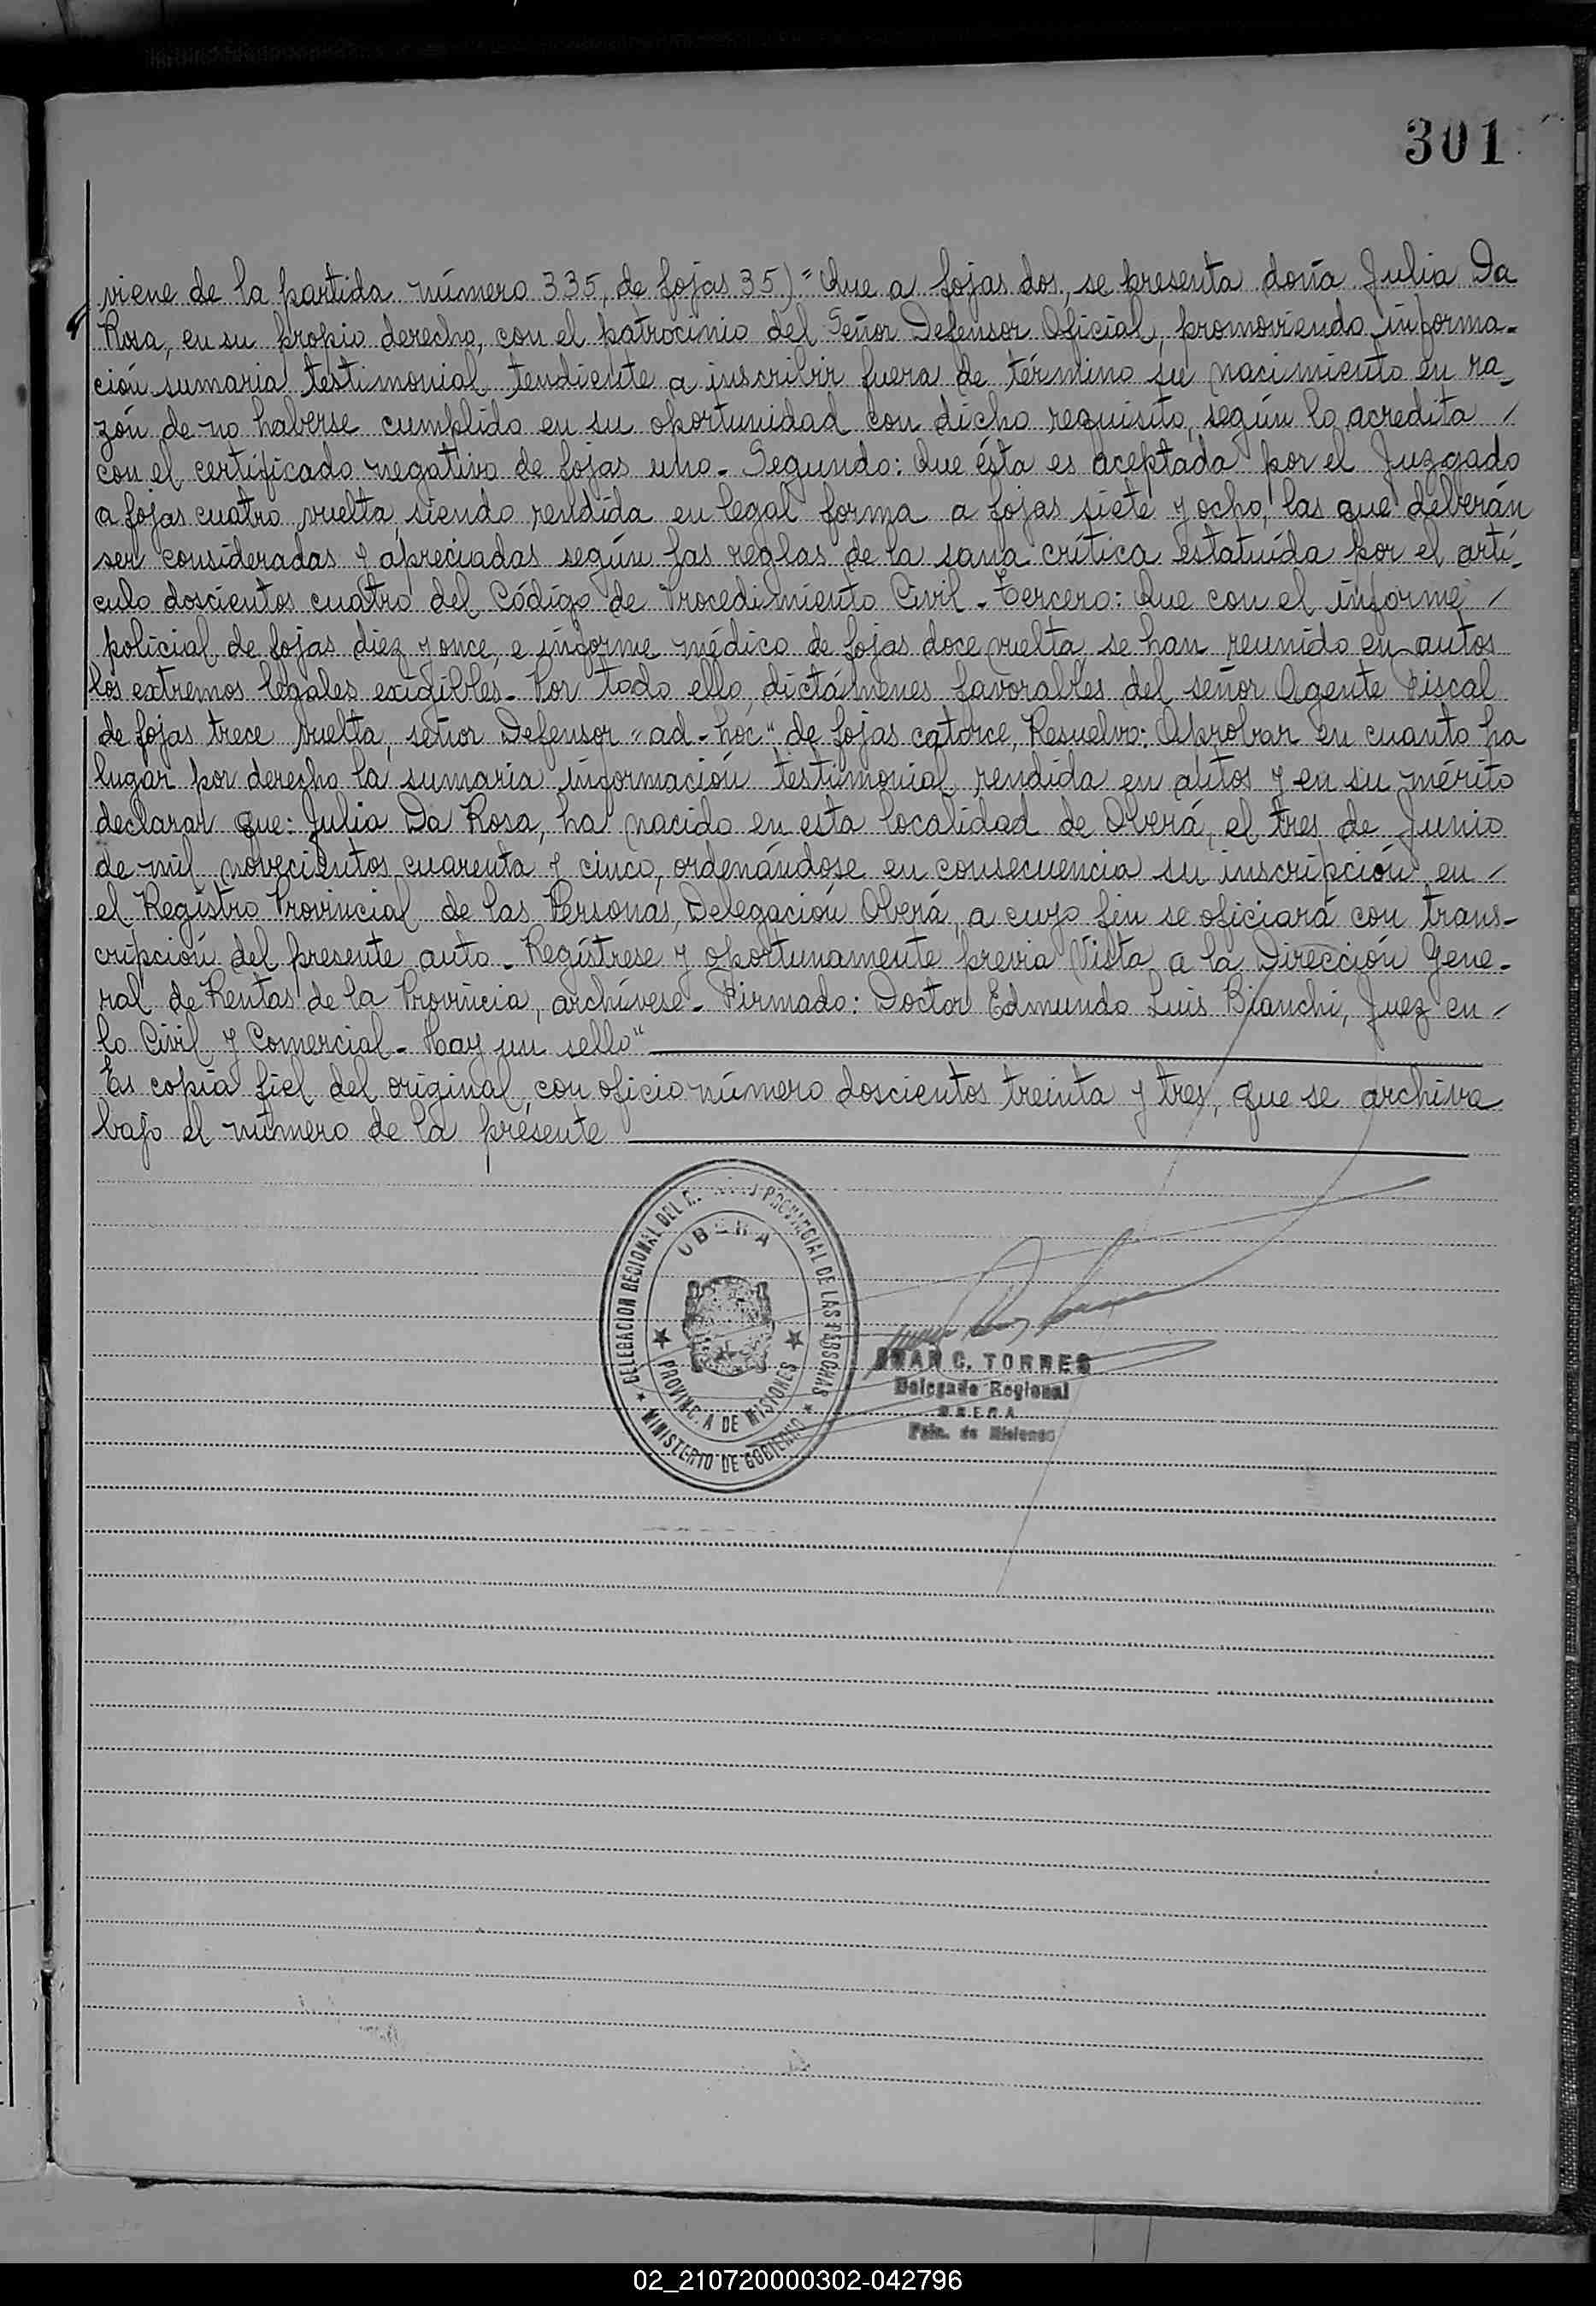 301
viene de la partida número 335, de fojas 35)=Que a fojas dos, se presenta doña Julia Da
Rosa, en su propio derecho, con el patrocinio del Señor Defensor Oficial, promoviendo informa-
ción sumaria testimonial tendiente a inscribir fuera de término su nacimiento en ra-
zón de no haberse cumplido en su oportunidad con dicho requisito, según lo acredita /
con el certificado negativo de fojas uno.- Segundo: Que ésta es aceptada por el Juzgado
a fojas cuatro vuelta, siendo rendida en legal forma a fojas siete y ocho, las que deberán
ser consideradas y apreciadas según las reglas de la sana crítica estatuída por el artí-
culo doscientos cuatro del Código de Procedimiento Civil.- Tercero: Que con el informe /
policial de fojas diez y once, e informe médico de fojas doce vuelta, se han reunido en autos
los extremos legales exigibles.- Por todo ello, dictámenes favorables del señor Agente Fiscal
de fojas trece vuelta, señor Defensor "ad-hoc" de fojas catorce, Resuelvo: Aprobar en cuanto ha
lugar por derecho la sumaria información testimonial rendida en autos y en su mérito
declarar que: Julia Da Rosa, ha nacido en esta localidad de Oberá, el tres de Junio
de mil novecientos cuarenta y cinco, ordenándose en consecuencia su inscripción en /
el Registro Provincial de las Personas, Delegación Oberá, a cuyo fin se oficiará con trans-
cripción del presente auto.- Regístrese y oportunamente previa Vista a la Dirección Gene-
ral de Rentas de la Provincia, archívese.- Firmado: Doctor Edmundo Luis Bianchi, Juez en /
lo Civil y Comercial.- Hay un sello"
Es copia fiel del original, con oficio número doscientos treinta y tres, que se archiva
bajo el número de la presente
DELEGACION REGIONAL DEL PROVINCIAL DE LAS PERSONAS
OBERA
PROVINCIA DE MISIONES
MINISTERIO DE GOBIERNO
JUAN C. TORRES
Delegado Regional
OBERA
Pcia. de Misiones
02_210720000302-042796